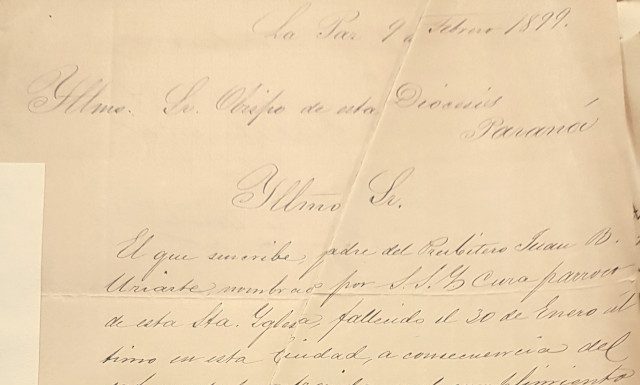 La Paz 9 de Febrero 1899.
Yllmo. Sr. Obispo de esta Diócesis
Paraná
Yllmo Sr.
El que suscribe, padre del Presbitero Juan B.
Uriarte, nombrado por S.S.Y. Cura parroco
de esta Sta. Yglesia, fallecido el 30 de Enero ul
timo en esta Ciudad, a consecuencia del